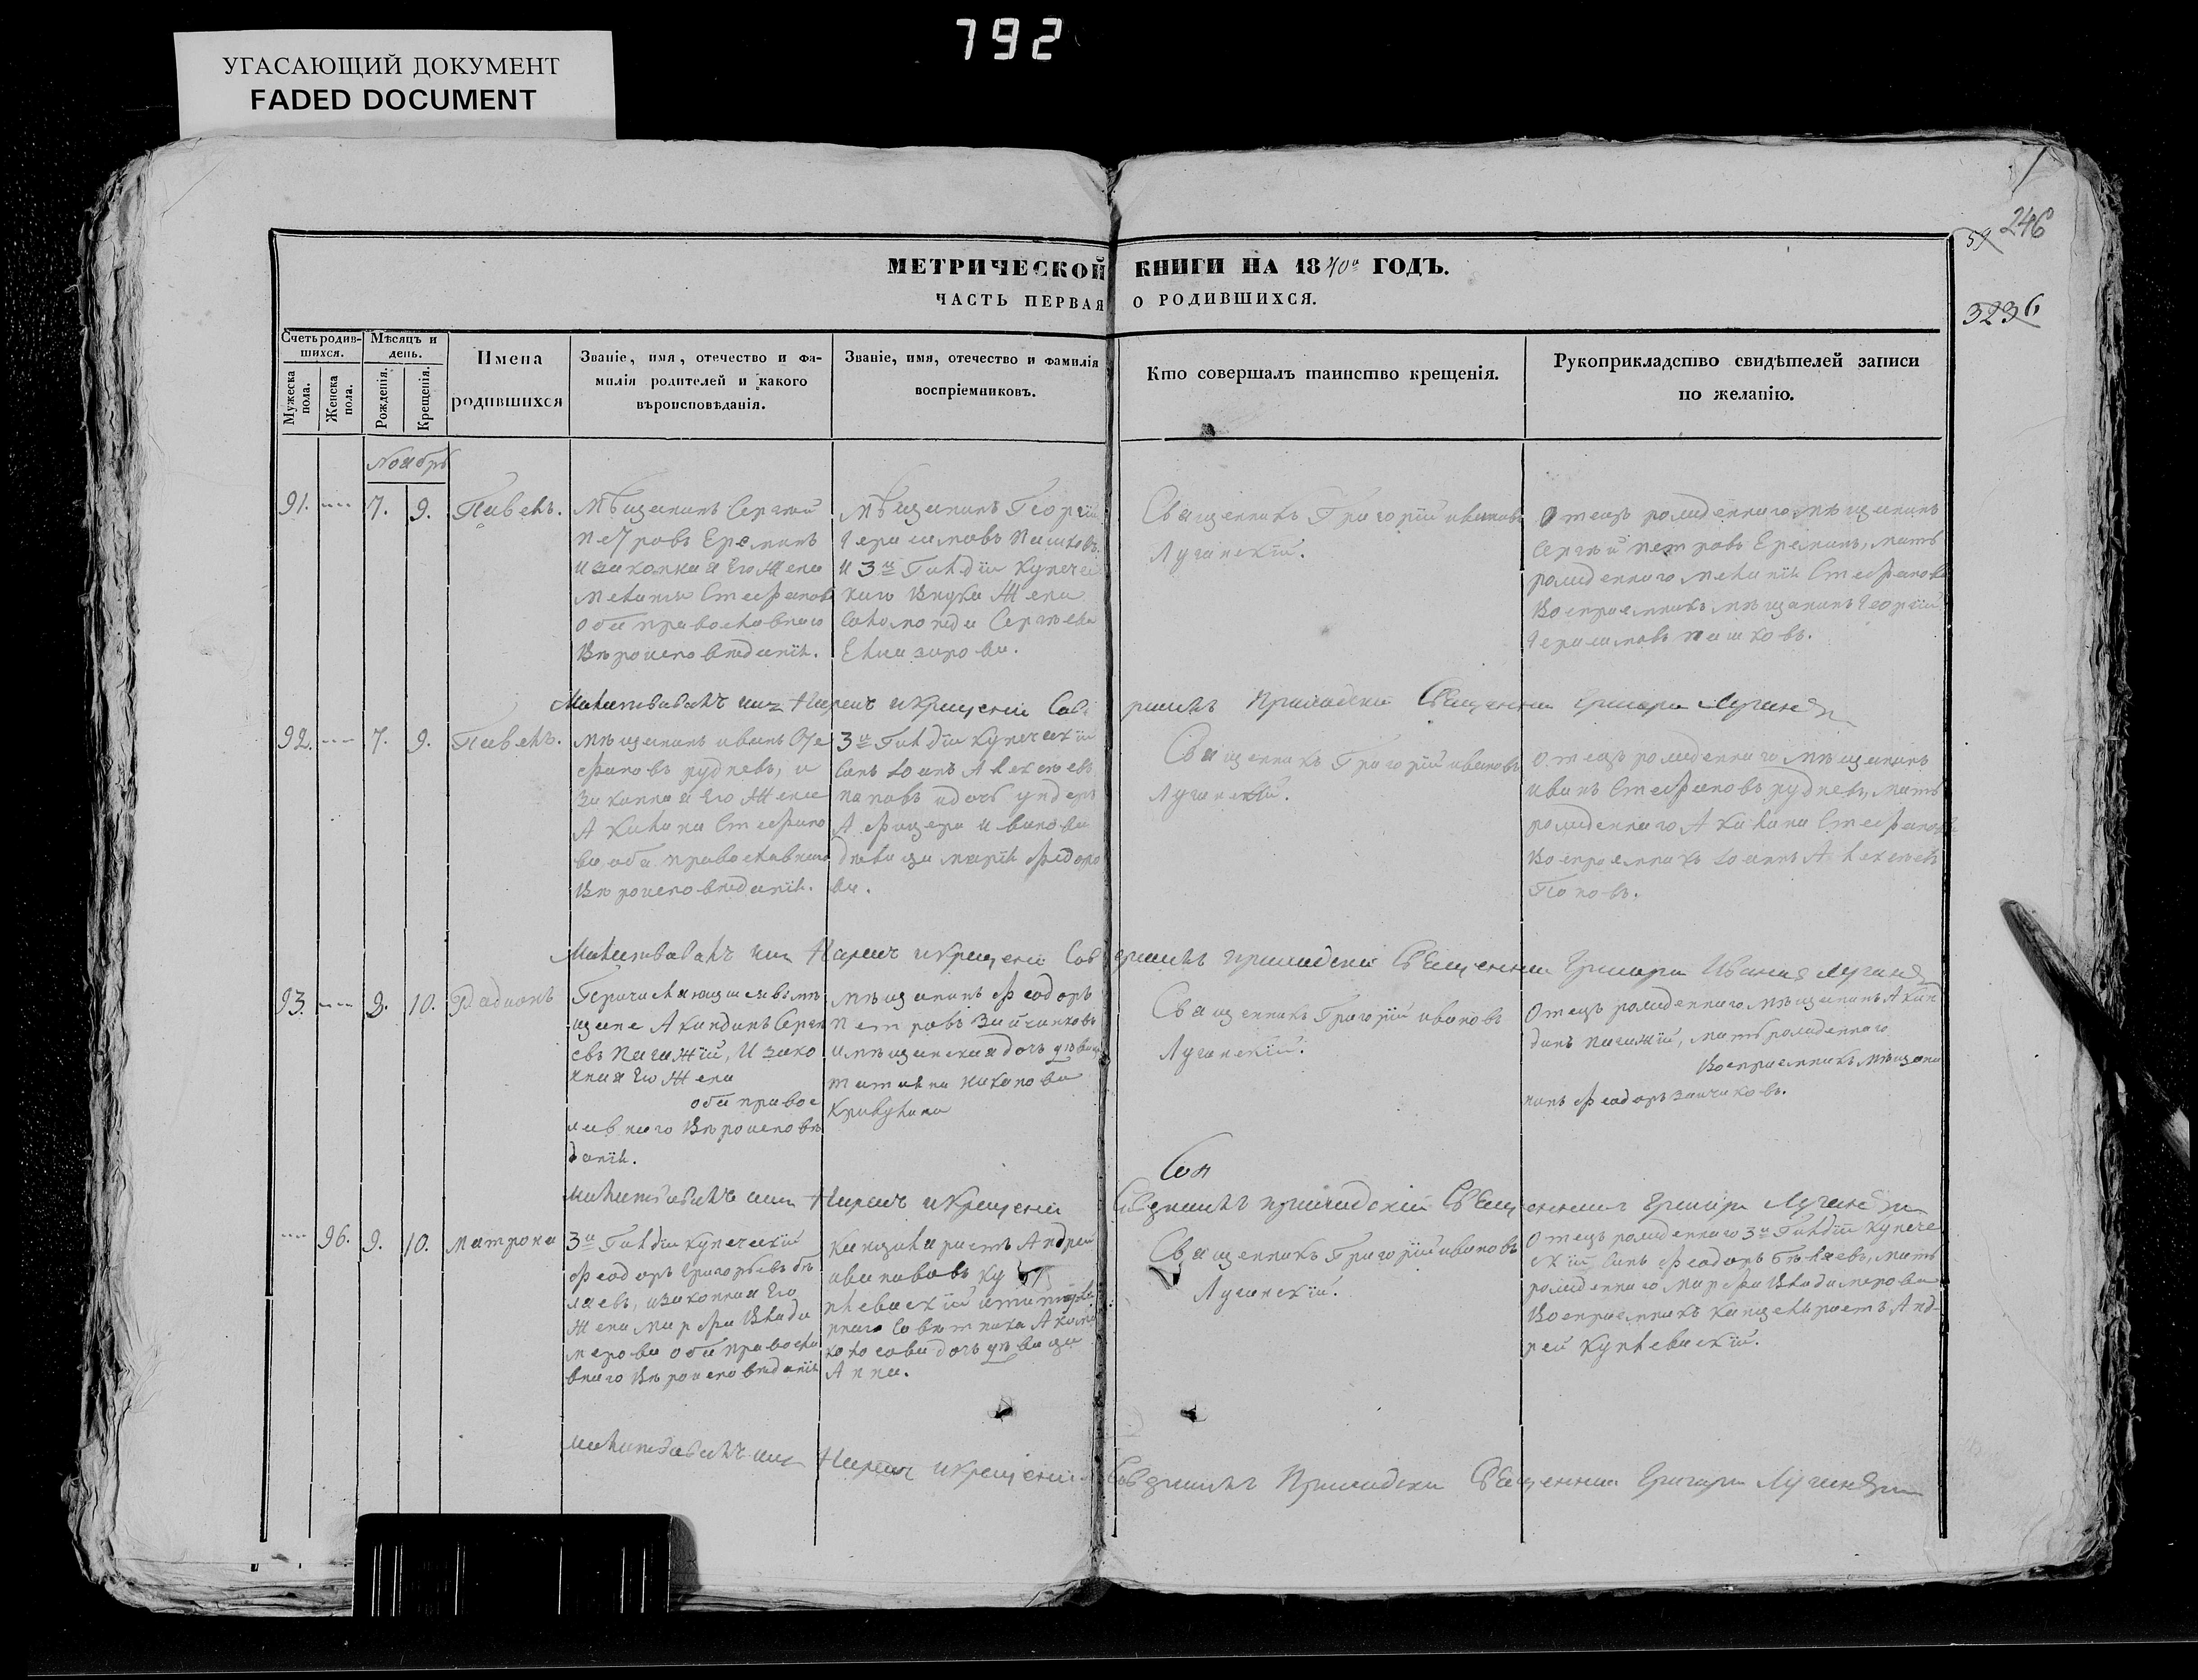 792
УГАСАЮЩИЙ ДОКУМЕНТ
FADED DOCUMENT
246
59
3236
МЕТРИЧЕСКОЙ КНИГИ НА 1840й ГОДЪ.
ЧАСТЬ ПЕРВАЯ О РОДИВШИХСЯ.
Счетъ родившихся.
Мужеска пола.
Женска пола.
Мѣсяцъ и день.
Рожденія.
Крещенія.
Имена
родившихся
Званіе, имя, отечество и фа-
милія родителей и какого
вѣроисповѣданія.
Званіе, имя, отечество и фамилія
воспріемниковъ.
Кто совершалъ таинство крещенія.
Рукоприкладство свидѣтелей записи
по желанію.
Ноябрь
91. 7. 9. Павелъ.
Мѣщанинъ Сергѣй
Петровъ Ереминъ
и законная Его Жена
Меланія Стефанов
оба православнаго
Вѣроисповѣданія.
Мѣщанинъ Георгій
Герасимовъ Пашковъ
и 3й Гильдіи Купечес
каго Внука Жена
Соломонида Сергѣева
Елиазарова.
Священникъ Григорій Ивановъ
Луганскій.
Отецъ рожденнаго мѣщанинъ
Сергѣй Петровъ Ереминъ, мать
рожденнаго Меланія Стефанова
Воспріемникъ мѣщанинъ Георгій
Герасимовъ Пашковъ.
Молитвовалъ имя нарекъ и крещеніе Совершилъ Приходскій Священник Григорий Луганский
92. 7. 9. Павелъ.
мѣщанинъ Иванъ Сте
фановъ рудневъ, и
Законная Его Жена
Акилина Стефано
ва, оба православнаго
Вѣроисповѣданія.
3й Гильдіи Купеческій
Сынъ Іоанъ Алексѣевъ
Поповъ и дочь ундеръ
Афицера Иванова
дѣвица Марія Федоро
ва.
Священникъ Григорій Ивановъ
Луганскій.
Отецъ рожденнаго мѣщанинъ
Иванъ Стефановъ рудневъ, мать
рожденнаго Акилина Стефанова
Воспріемникъ Іоаннъ Алексѣевъ
Поповъ.
Молитвовалъ имя Нарекъ и крещеніе Совершилъ приходский Священник Григорий Иванов Луганский
93. 9. 10. Радионъ
Причисляющиеся въ мѣ
щане Акиндинъ Сергѣ
евъ Пагажій, И зако
нная Его Жена
оба правос
лавнаго Вѣроисповѣ
данія.
мѣщанинъ Феодоръ
Петровъ Зайчиковъ
и мѣщанская дочь дѣвица
татьяна никонова
Кривулина
Священникъ Григорій Ивановъ
Луганскій.
Отецъ рожденнаго мѣщанинъ Акин
динъ Пагажій, мать рожденнаго
Воспріемникъ мѣщани
нинъ Феодоръ Зайчиковъ.
Молитвовалъ имя Нарекъ и крещеніе Совершилъ приходскій Священник Григорий Луганский
96. 9. 10. Матрона
3й Гильдіи купеческій
Феодоръ Григорьевъ бѣ
ляевъ, и законная Его
Жена Марфа Влади
мерова оба правосла
внаго Вѣроисповѣданія
канцеляристъ Андрей
Ивановъ ку
плеваскій и титуля
рнаго Совѣтника Акима
Колосова дочь дѣвица
Анна.
Священникъ Григорій Ивановъ
Луганскій.
Отецъ рожденнаго 3й Гильдіи Купече
скій Сынъ Феодоръ Бѣляевъ, мать
рожденнаго Марфа Владимерова
Воспріемникъ канцеляристъ Анд-
рей Куплеваскій.
Молитвовалъ имя Нарекъ и крещеніе Совершилъ Приходский Священник Григорий Луганский